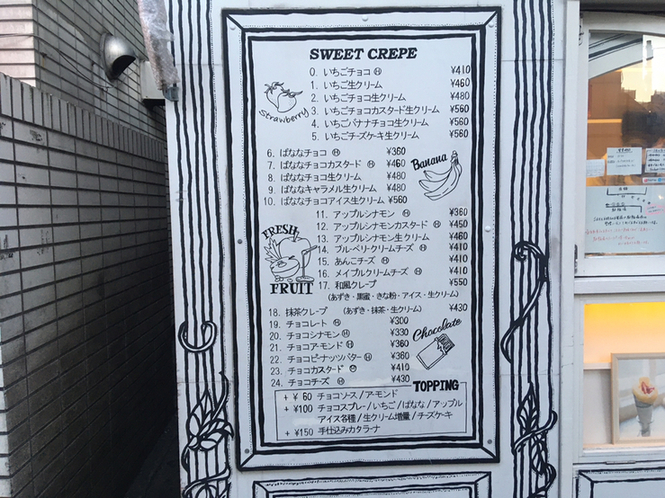 SWEET CREPE
0. いちごチョコ Ⓗ ¥410
1. いちご生クリーム ¥460
2. いちごチョコ生クリーム ¥480
3. いちごチョコカスタード生クリーム ¥560
4. いちごバナナチョコ生クリーム ¥560
5. いちごチーズケーキ生クリーム ¥560
Strawberry
6. ばななチョコ Ⓗ ¥360
7. ばななチョコカスタード Ⓗ ¥460
8. ばななチョコ生クリーム ¥480
9. ばななキャラメル生クリーム ¥480
10. ばななチョコアイス生クリーム ¥560
Banana
11. アップルシナモン Ⓗ ¥360
12. アップルシナモンカスタード Ⓗ ¥450
13. アップルシナモン生クリーム ¥460
14. ブルーベリークリームチーズ Ⓗ ¥410
15. あんこチーズ Ⓗ ¥410
16. メイプルクリームチーズ Ⓗ ¥410
17. 和風クレープ ¥550
(あずき・黒蜜・きな粉・アイス・生クリーム)
FRESH
FRUIT
18. 抹茶クレープ (あずき・抹茶・生クリーム) ¥430
19. チョコレート Ⓗ ¥300
20. チョコシナモン Ⓗ ¥330
21. チョコアーモンド Ⓗ ¥360
22. チョコピーナッツバター Ⓗ ¥360
23. チョコカスタード Ⓗ ¥410
24. チョコチーズ Ⓗ ¥430
Chocolate
TOPPING
+ ¥ 60 チョコソース/アーモンド
+ ¥100 チョコスプレー/いちご/ばなな/アップル
アイス各種/生クリーム増量/チーズケーキ
+ ¥150 手仕込みカタラーナ